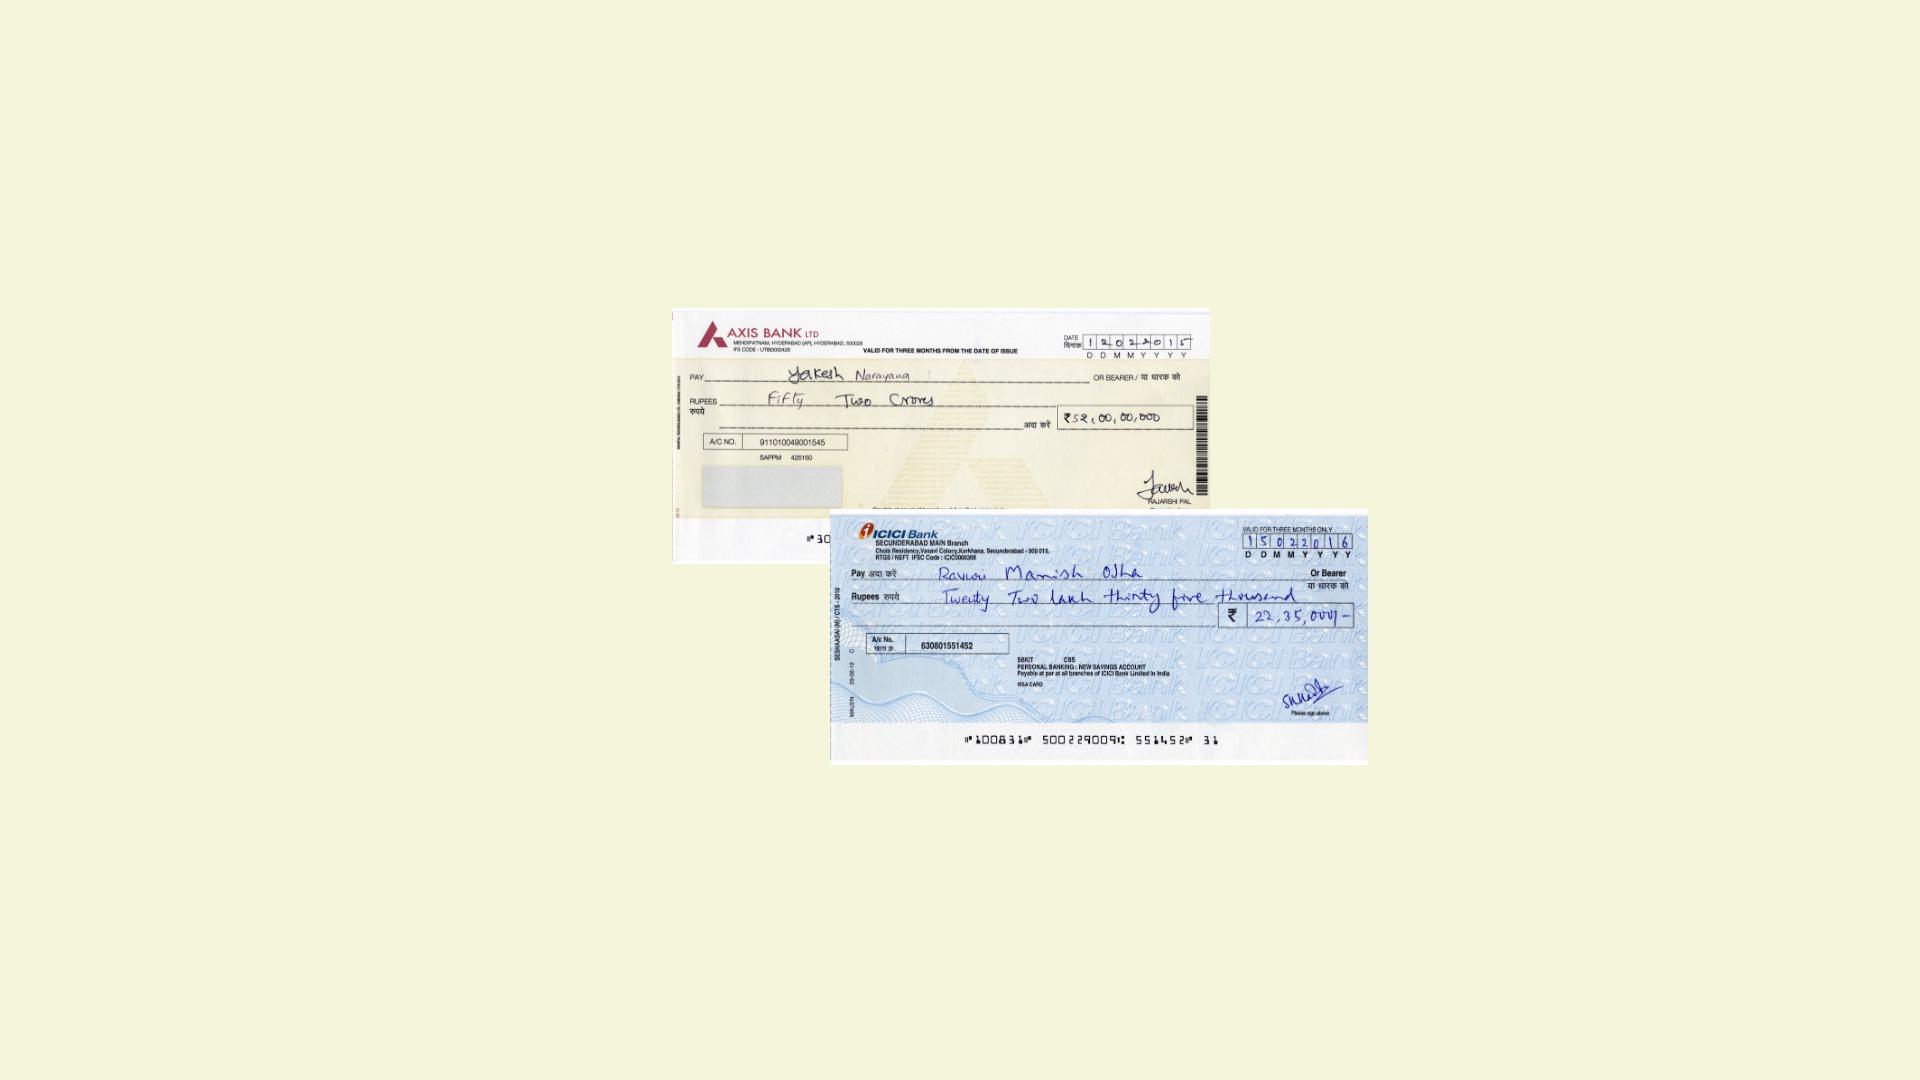 AXIS BANK LTD
MEHDIPATNAM, HYDERABAD (AP), HYDERABAD, 500028
IFS CODE - UTIB0000426
VALID FOR THREE MONTHS FROM THE DATE OF ISSUE
DATE
दिनांक 1 2 0 2 2 0 1 5
D D M M Y Y Y Y
PAY Yakesh Narayana OR BEARER / या धारक को
RUPEES Fifty Two Crores
रुपये
अदा करें ₹52,00,00,000
A/C NO. 911010049001545
SAPPM 426160
RAJARSHI PAL
⑈30
ICICI Bank
SECUNDERABAD MAIN Branch
Chola Residency,Vasavi Colony,Karkhana, Secunderabad - 500 015.
RTGS / NEFT IFSC Code : ICIC0006308
VALID FOR THREE MONTHS ONLY
1 5 0 2 2 0 1 6
D D M M Y Y Y Y
Pay अदा करें Manish Ojha Or Bearer
या धारक को
Rupees रुपये Twenty Two lakh thirty five thousand
₹ 22,35,000/-
A/c No.
खाता क्र. 630801551452
SBKIT CBS
PERSONAL BANKING : NEW SAVINGS ACCOUNT
Payable at par at all branches of ICICI Bank Limited in India
VISA CARD
Please sign above
SESHAASAI (M) / CTS - 2010
⑈100831⑈ 500229009⑆ 551452⑈ 31